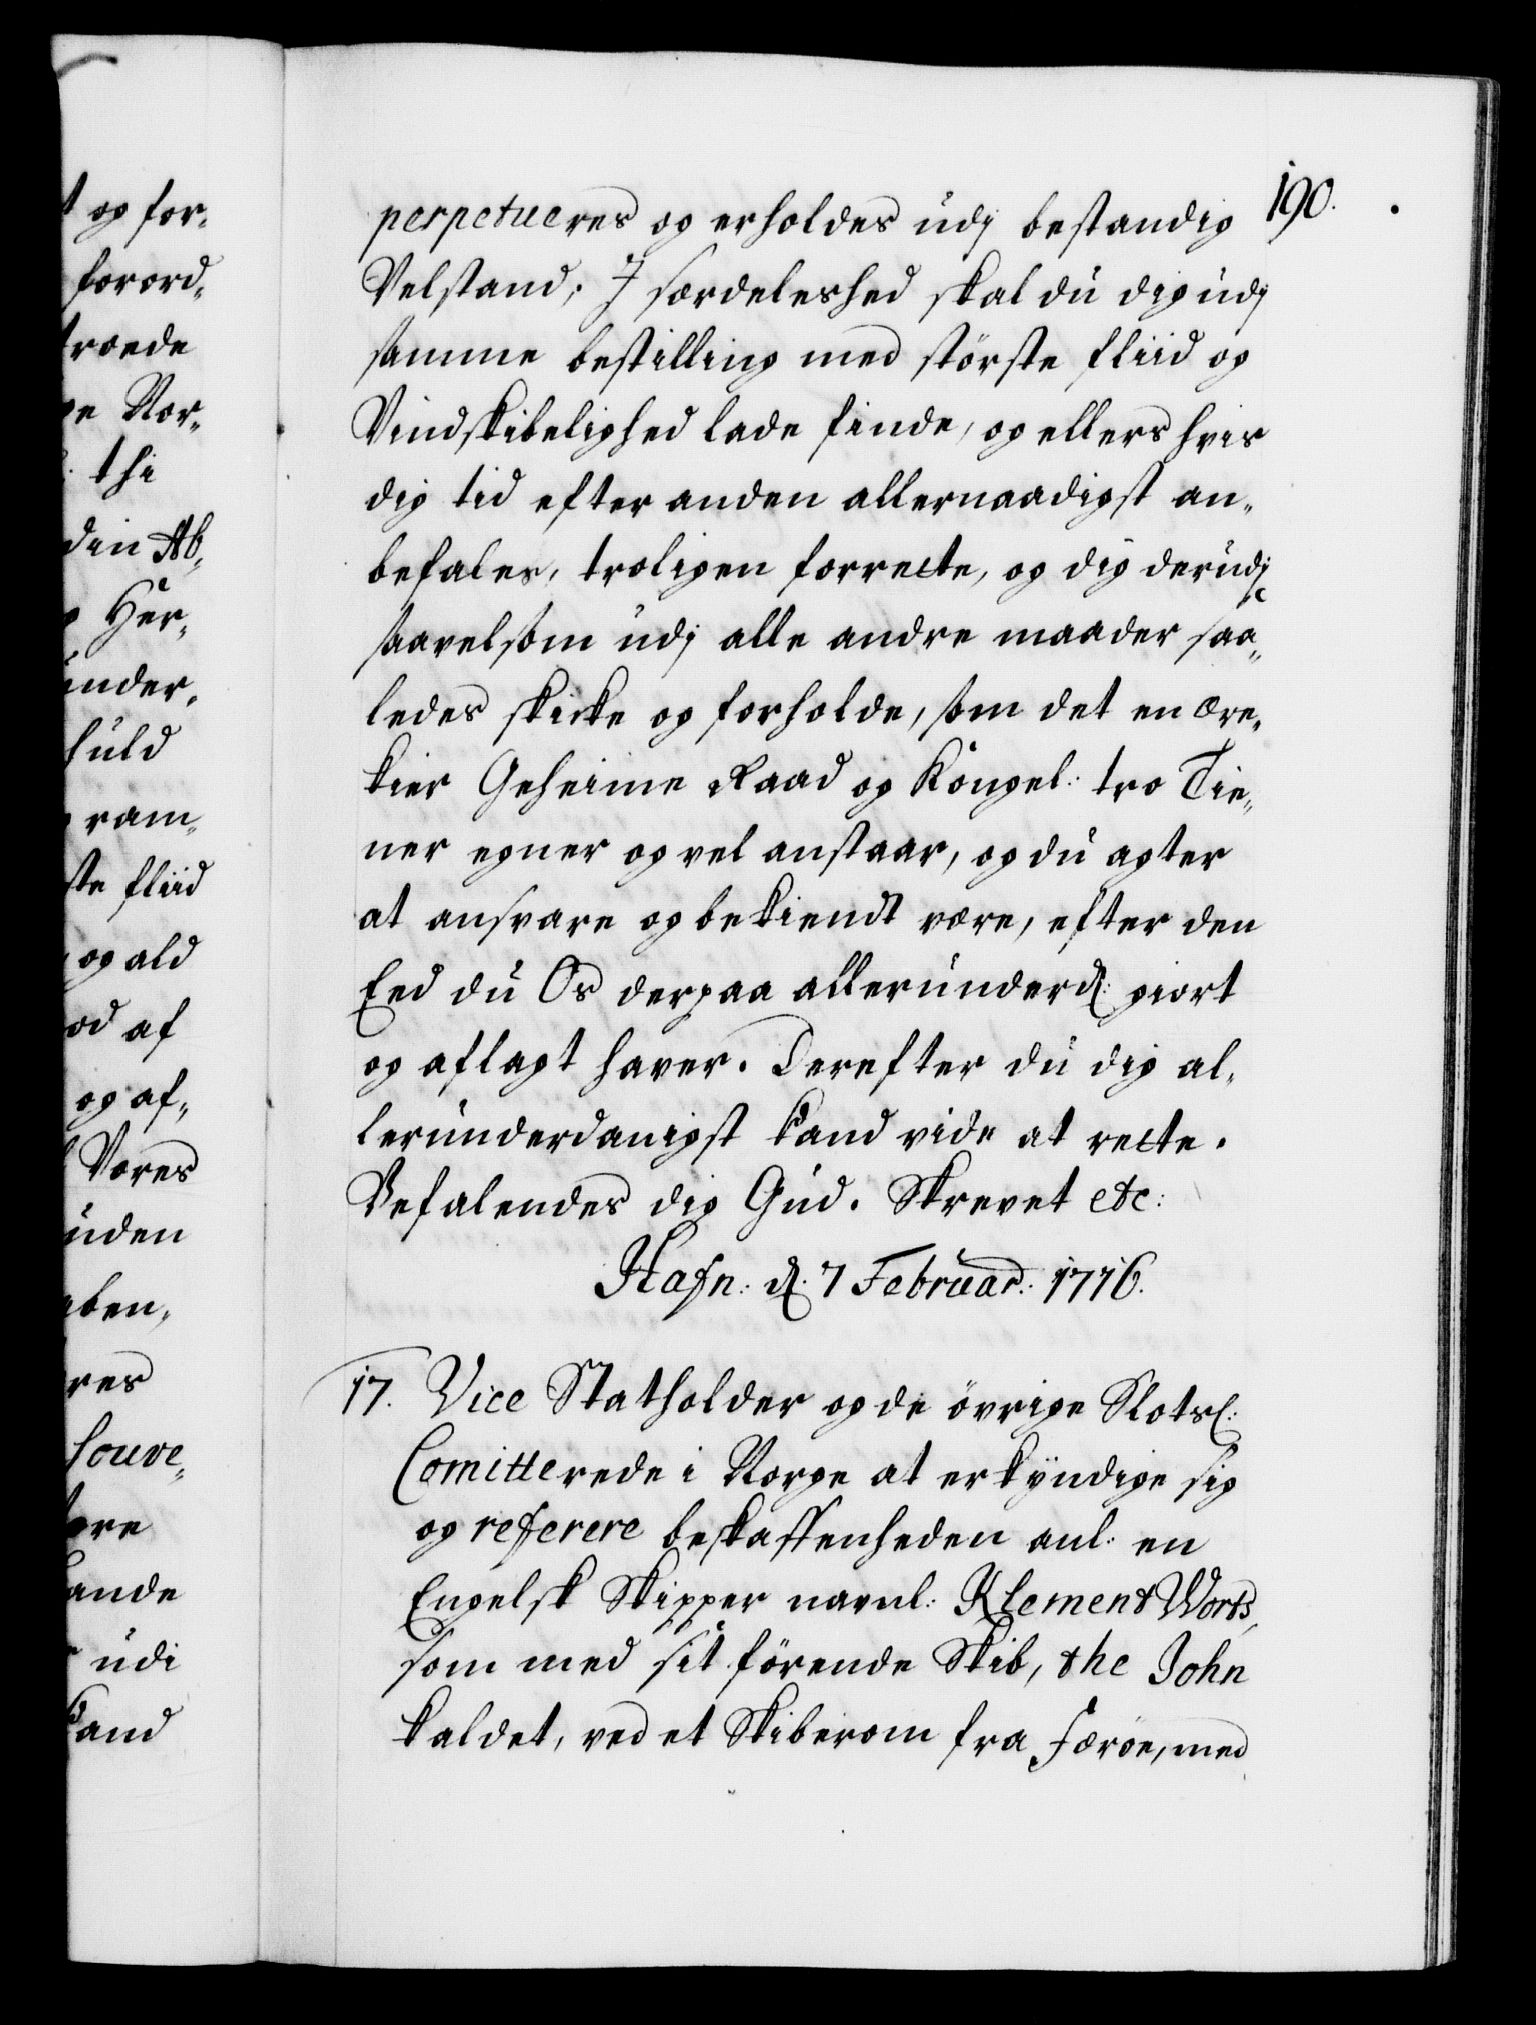 190.
perpetueres og erholdes udj bestandig
Velstand; J særdeleshed skal du dig udj
samme bestilling med störste fliid og
Vindskibelighed lade finde, og ellers hvis
dig tid efter anden allernaadigst an„
befales, troligen forrette, og dig derudj
saavelsom udj alle andre maader saa„
ledes skicke og forholde, som det en ære„
kier Geheime Raad og Kongel: tro Tie„
ner egner og vel anstaar, og du agter
at ansvare og bekiendt være, efter den
Eed du Os derpaa allerunderd: giort
og aflagt haver. Derefter du dig al„
lerunderdanigst kand vide at rette.
Befalendes dig Gud. Skrevet etc:
Hafn: d. 7 Februar: 1716.
17. Vice Statholder og de övrige Slotsl:
Comitterede i Norge at erkyndige sig
og referere beskaffenheden anl: en
Engelsk Skipper navnl: Klement Worts,
som med sit förende Skib, the John
kaldet, ved et Skiberom fra Færöe, med
t og for„
forord„
troede
ge Nor„
thi
din Ab„
Her„
under„
huld
ram„
ste fliid
og ald
od af
og af„
Vores
uden
aben„
res
souve„
ære
ande
udi
kand